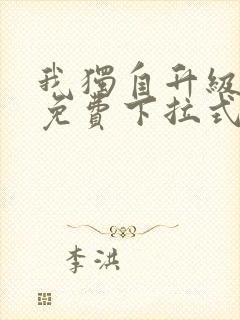 我獨自升級
免費下拉式
李洪